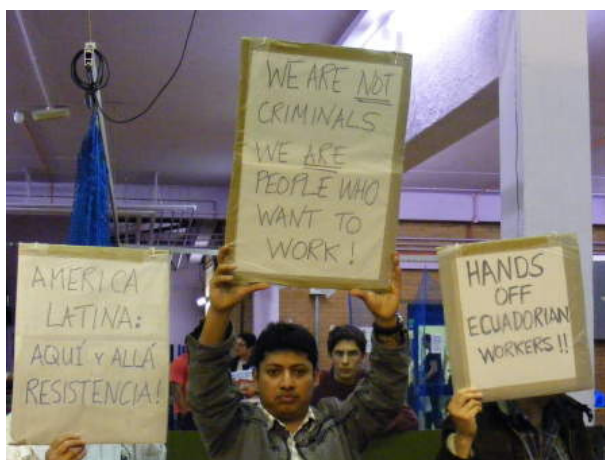 AMERICA
LATINA:
AQUÍ Y ALLÁ
RESISTENCIA!
WE ARE NOT
CRIMINALS
WE ARE
PEOPLE WHO
WANT TO
WORK!
HANDS
OFF
ECUADORIAN
WORKERS!!